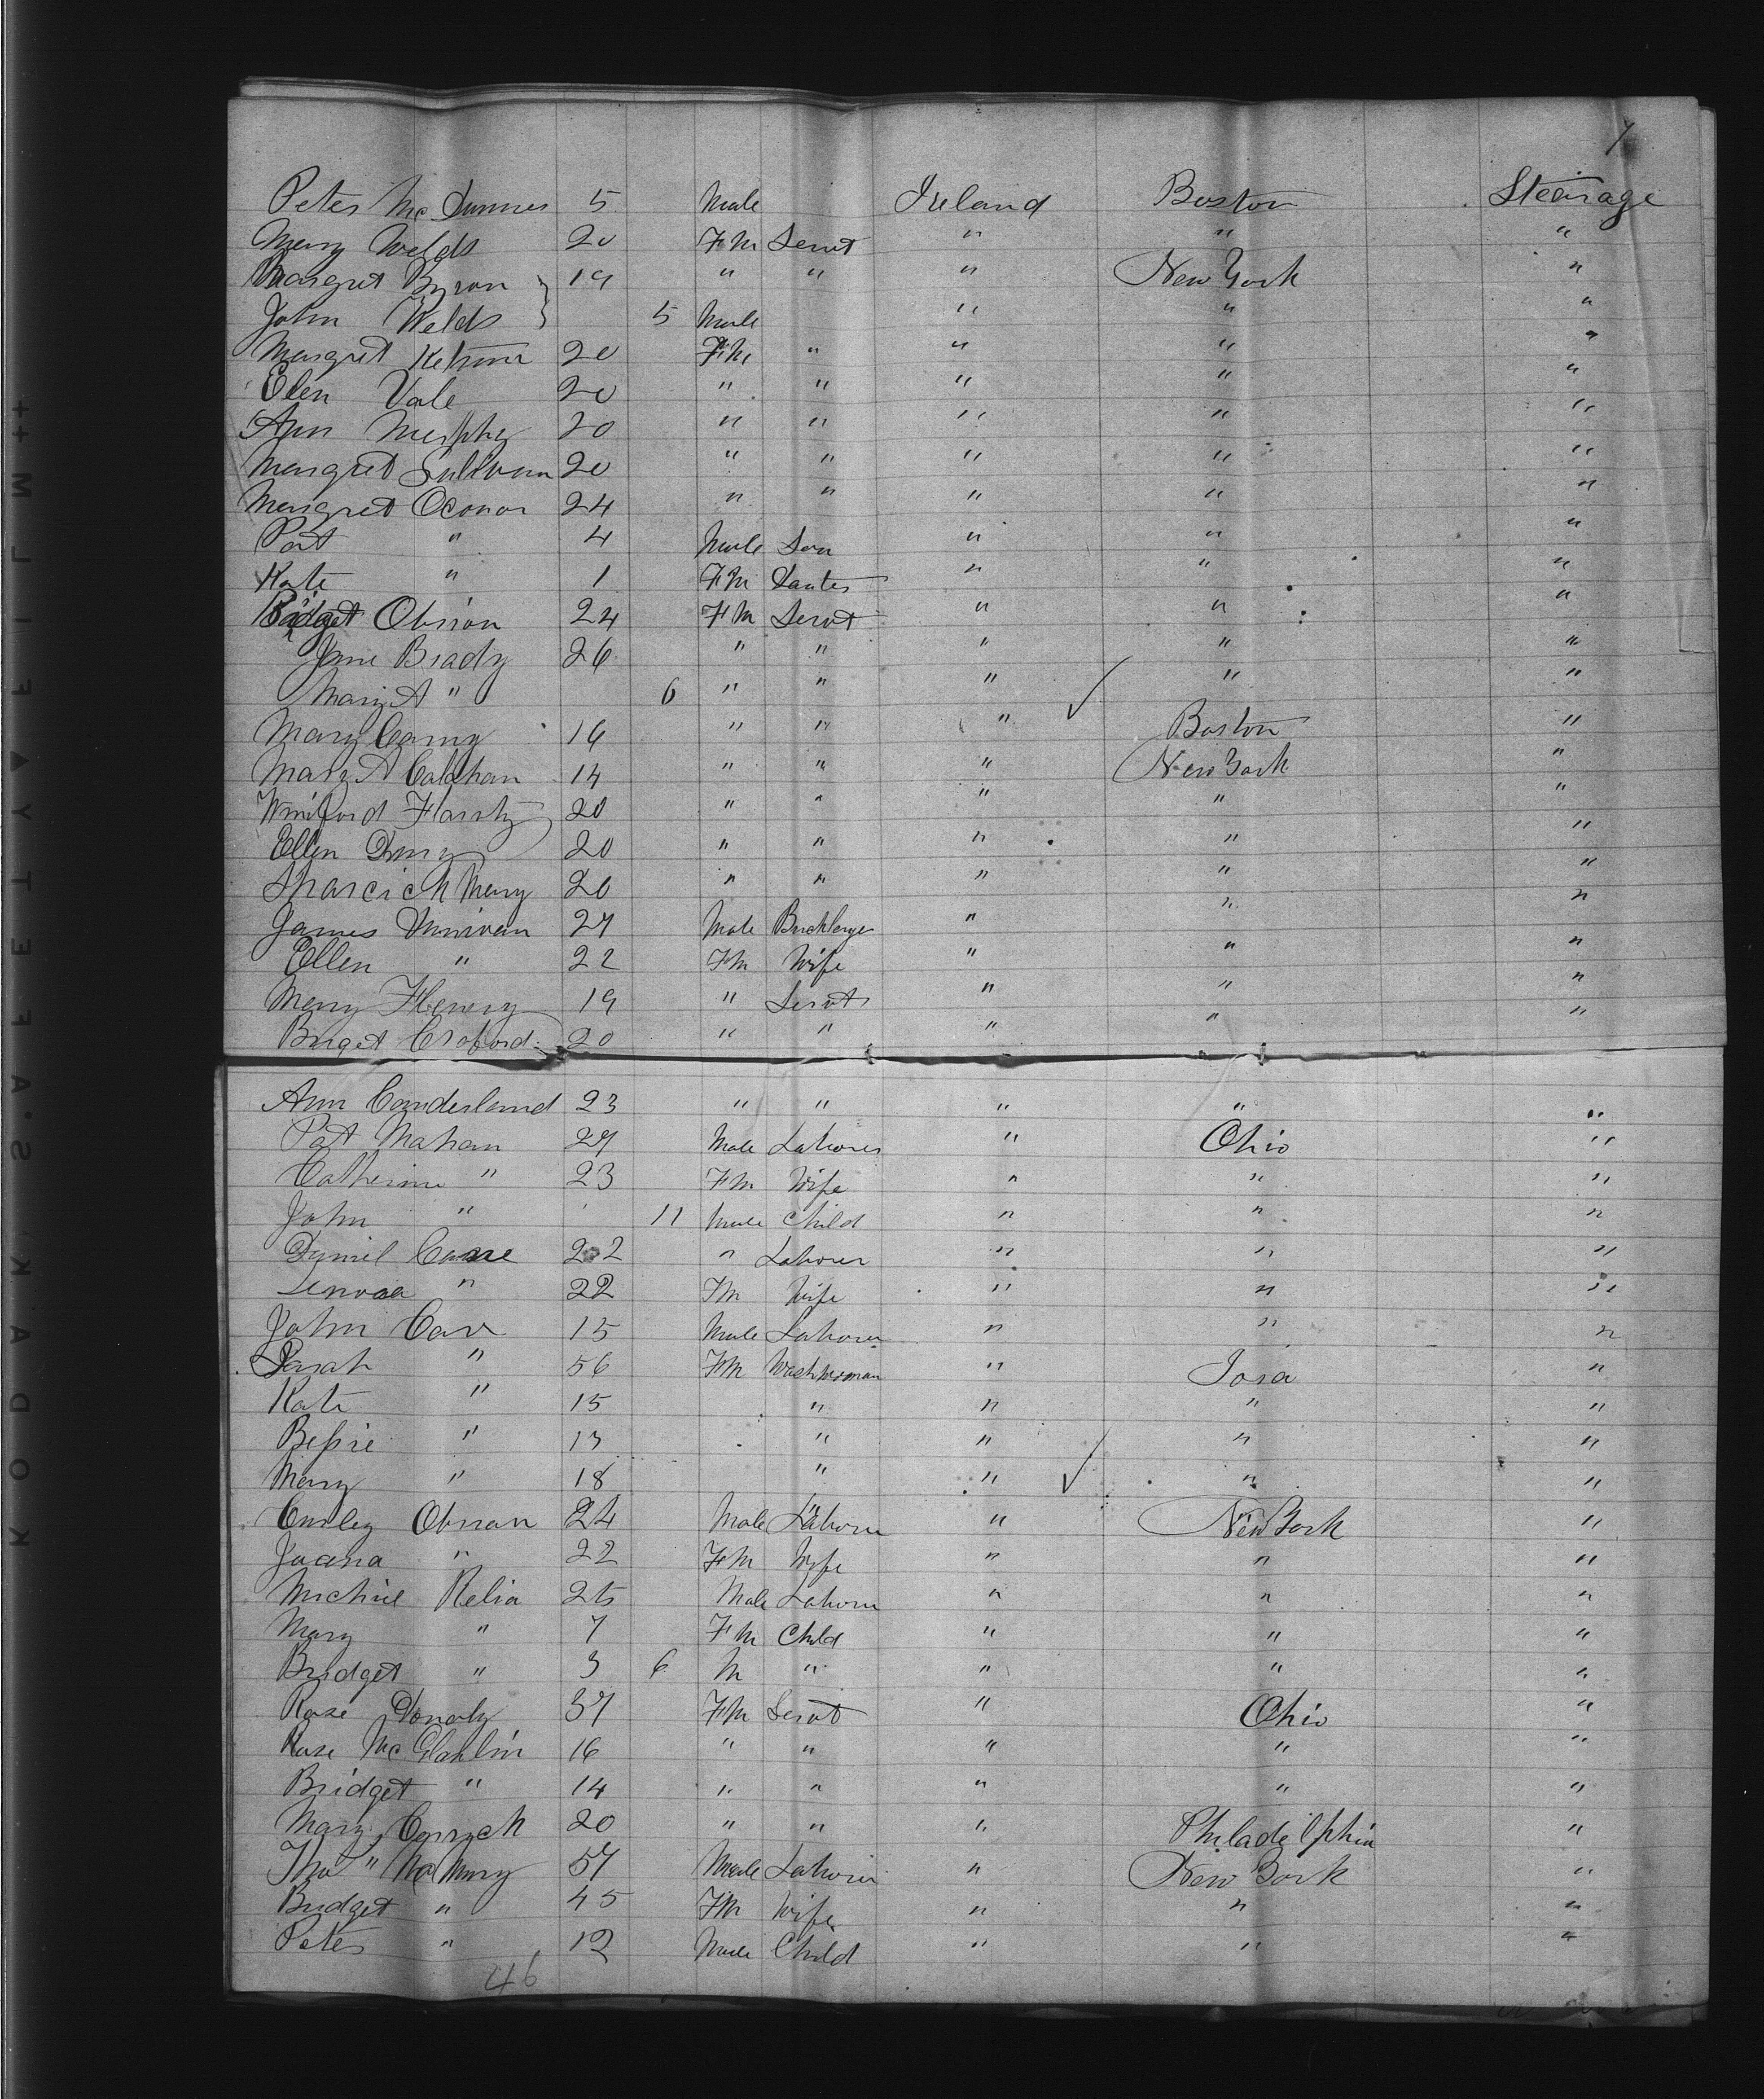 7
Peter Mc Dunner 5 Male Ireland Boston Stearage
Mary Welds 20 F M Servt " " "
Margret Byron } 19 " " " New York "
John Welds } 5 Male " " "
Margret 20 F M " " " "
Elen Vale 20 " " " " "
Ann Murphy 20 " " " " "
Margret Sullivan 20 " " " " "
Margret Oconor 24 " " " " "
Pat " 4 Male Son " " "
Kate " 1 F M " " "
Bridget Obrion 24 F M Servt " " "
Jane Brady 26 " " " " "
Mary A " 6 " " " " "
Mary Carny 16 " " " Boston "
Mary A Calahan 14 " " " New York "
Winiford 20 " " " " "
Ellen 20 " " " " "
Mary 20 " " " " "
James 27 Male " " "
Ellen " 22 F M Wife " " "
Mary 19 " Servt " " "
Birget Croford 20 " " " " "
Ann Canderland 23 " " " " "
Pat Mahan 27 Male Laborer " Ohio "
Catherine " 23 F M Wife " " "
John " 11 Male Child " " "
Daniel 22 " Laborer " " "
" 22 F M Wife " " "
John 15 Male Laborer " " "
Sarah " 56 F M Washwoman " Iora "
Kate " 15 " " " "
Bessie " 13 " " " "
Mary " 18 " " " "
Obrian 24 Male Laborer " New York "
Joana " 22 F M Wife " " "
Michael Relia 25 Male Laborer " " "
Mary " 7 F M Child " " "
Bridget " 3 6 M " " " "
Rose Donaly 37 F M Servt " Ohio "
Rose Mc Glahlin 16 " " " " "
Bridget " 14 " " " " "
Mary 20 " " " Philadelphia "
Tho " 57 Male Laborer " New York "
Bridget " 45 F M Wife " " "
Peter " 12 Male Child " " "
46
KODAK·SAFETY FILM ++